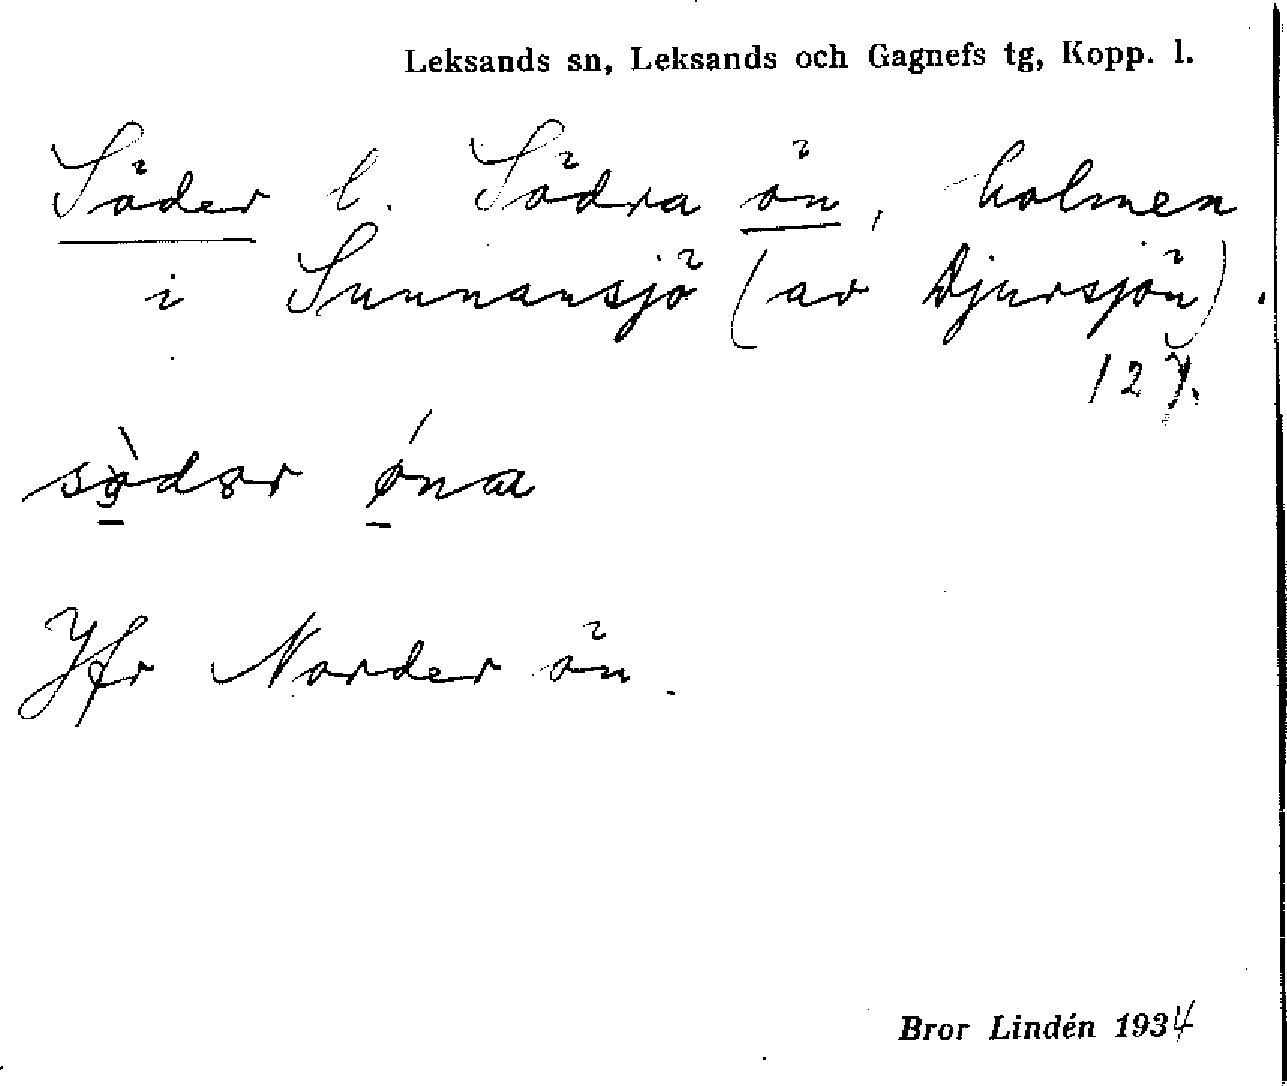 Leksands sn, Leksands och Gagnefs tg, Kopp. l.
Söder l. Södra ön, holmen
i Sunnansjö (av Djursjön).
127.
Jfr Norder ön.
Bror Lindén 1934